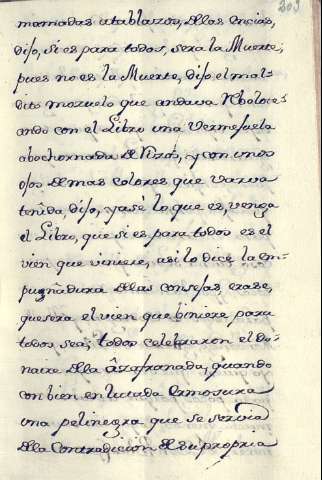 203
mamadas atablazos, dellas encias,
dijo, si es para todos, sera la Muerte,
pues no es la Muerte, dijo el mal-
dito mozuelo que andava
ando con el Libro una Vermejuela
abochornada de Rizos, y con unos
ojos de mas colores que barva
teñida, dijo, ya sé lo que es, venga
el Libro, que si es para todos es el
vien que viniere, asi lo dice la em-
pugñadura dellas consejas erase,
que sera el vien que biniere para
todos sea; todos celebraron el do-
naire della Azafranada, quando
con bien enlutada Ermosura
una pelinegra que se servia
della Contradicion de su propria